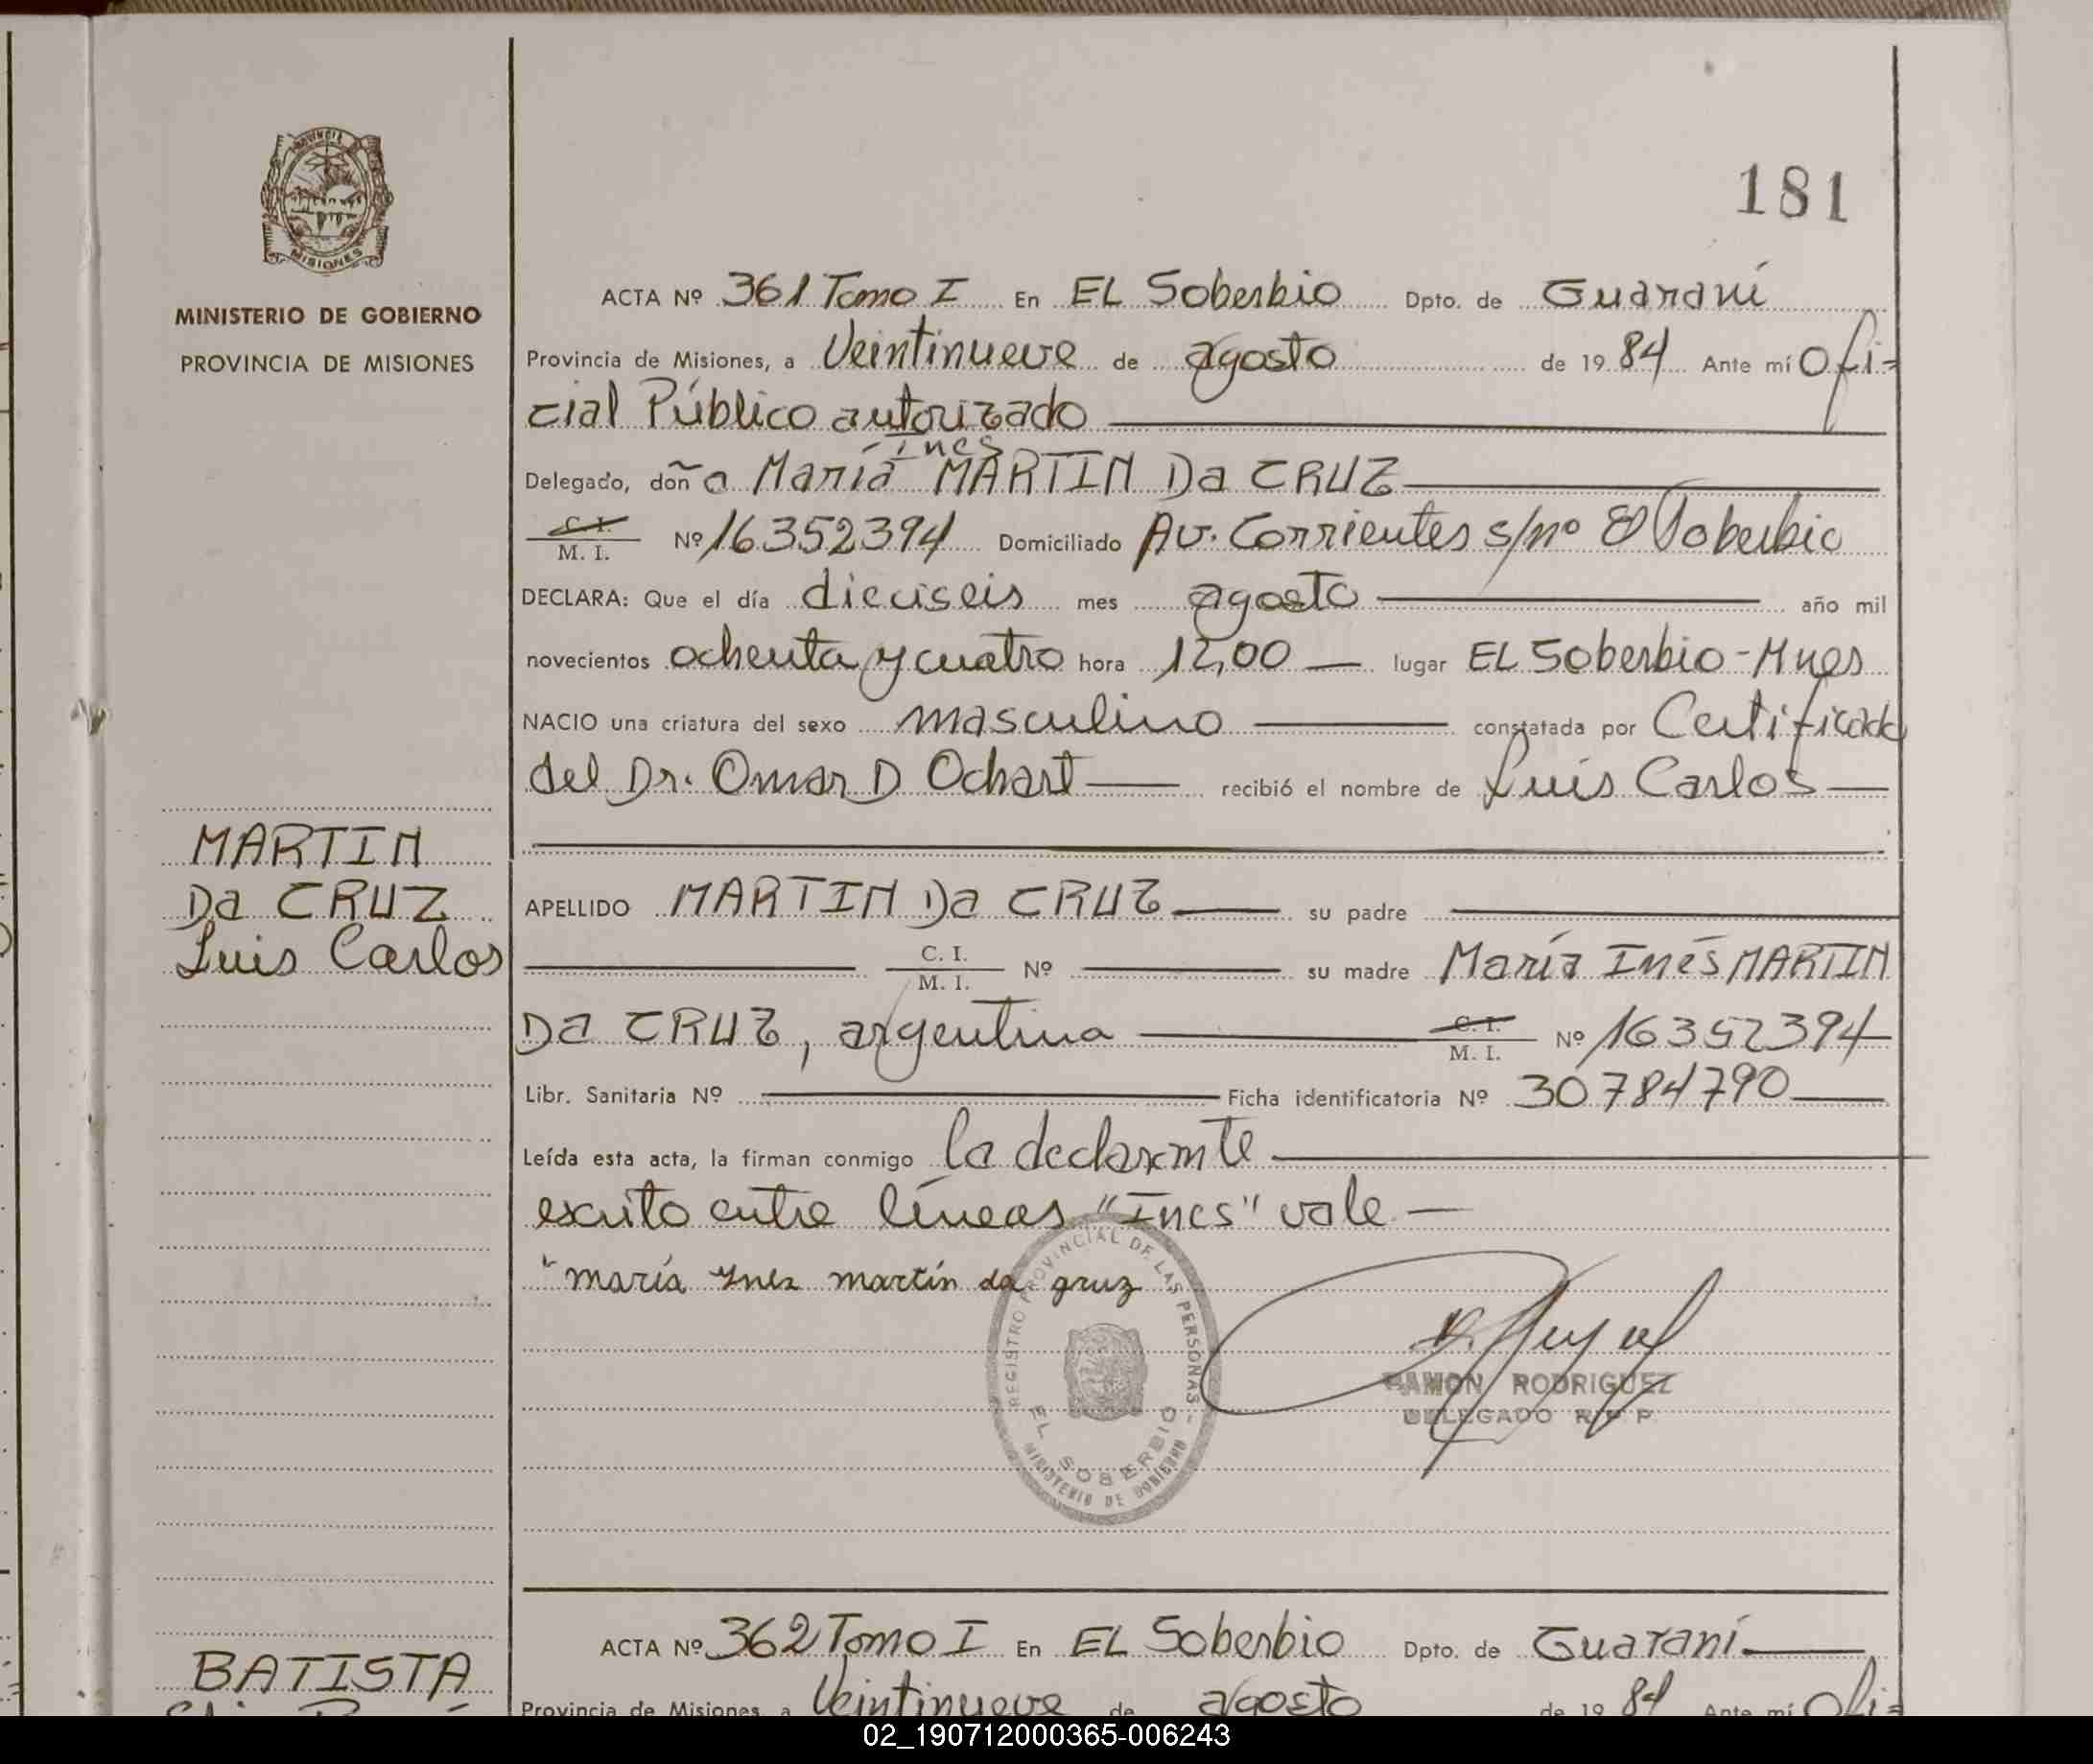 PROVINCIA
MISIONES
MINISTERIO DE GOBIERNO
PROVINCIA DE MISIONES
181
ACTA Nº 361 Tomo I En EL Soberbio Dpto. de Guaraní
Provincia de Misiones, a Veintinueve de agosto de 1984 Ante mí Ofi=
cial Público autorizado
Inés
Delegado, doña María MARTIN Da CRUZ
C. I.
M. I. Nº 16352394 Domiciliado Av. Corrientes s/nº El Soberbio
DECLARA: Que el día dieciseis mes agosto año mil
novecientos ochenta y cuatro hora 12,00 lugar EL Soberbio - Mnes
NACIO una criatura del sexo masculino constatada por Certificado
del Dr. Omar D Ochart recibió el nombre de Luis Carlos
MARTIN
Da CRUZ
Luis Carlos
APELLIDO MARTIN Da CRUZ su padre
C. I.
M. I. Nº su madre María Inés MARTIN
Da CRUZ, argentina C. I. M. I. Nº 16352394
Libr. Sanitaria Nº Ficha identificatoria Nº 30784790
Leída esta acta, la firman conmigo la declarante
escrito entre líneas "Ines" vale —
maría ynez martín da gruz
REGISTRO PROVINCIAL DE LAS PERSONAS - EL SOBERBIO
MINISTERIO DE GOBIERNO
RAMON RODRIGUEZ
DELEGADO R P P
ACTA Nº 362 Tomo I En EL Soberbio Dpto. de Guaraní
BATISTA
Provincia de Misiones a Veintinueve de agosto de 1984 Ante mí Ofi=
02_190712000365-006243